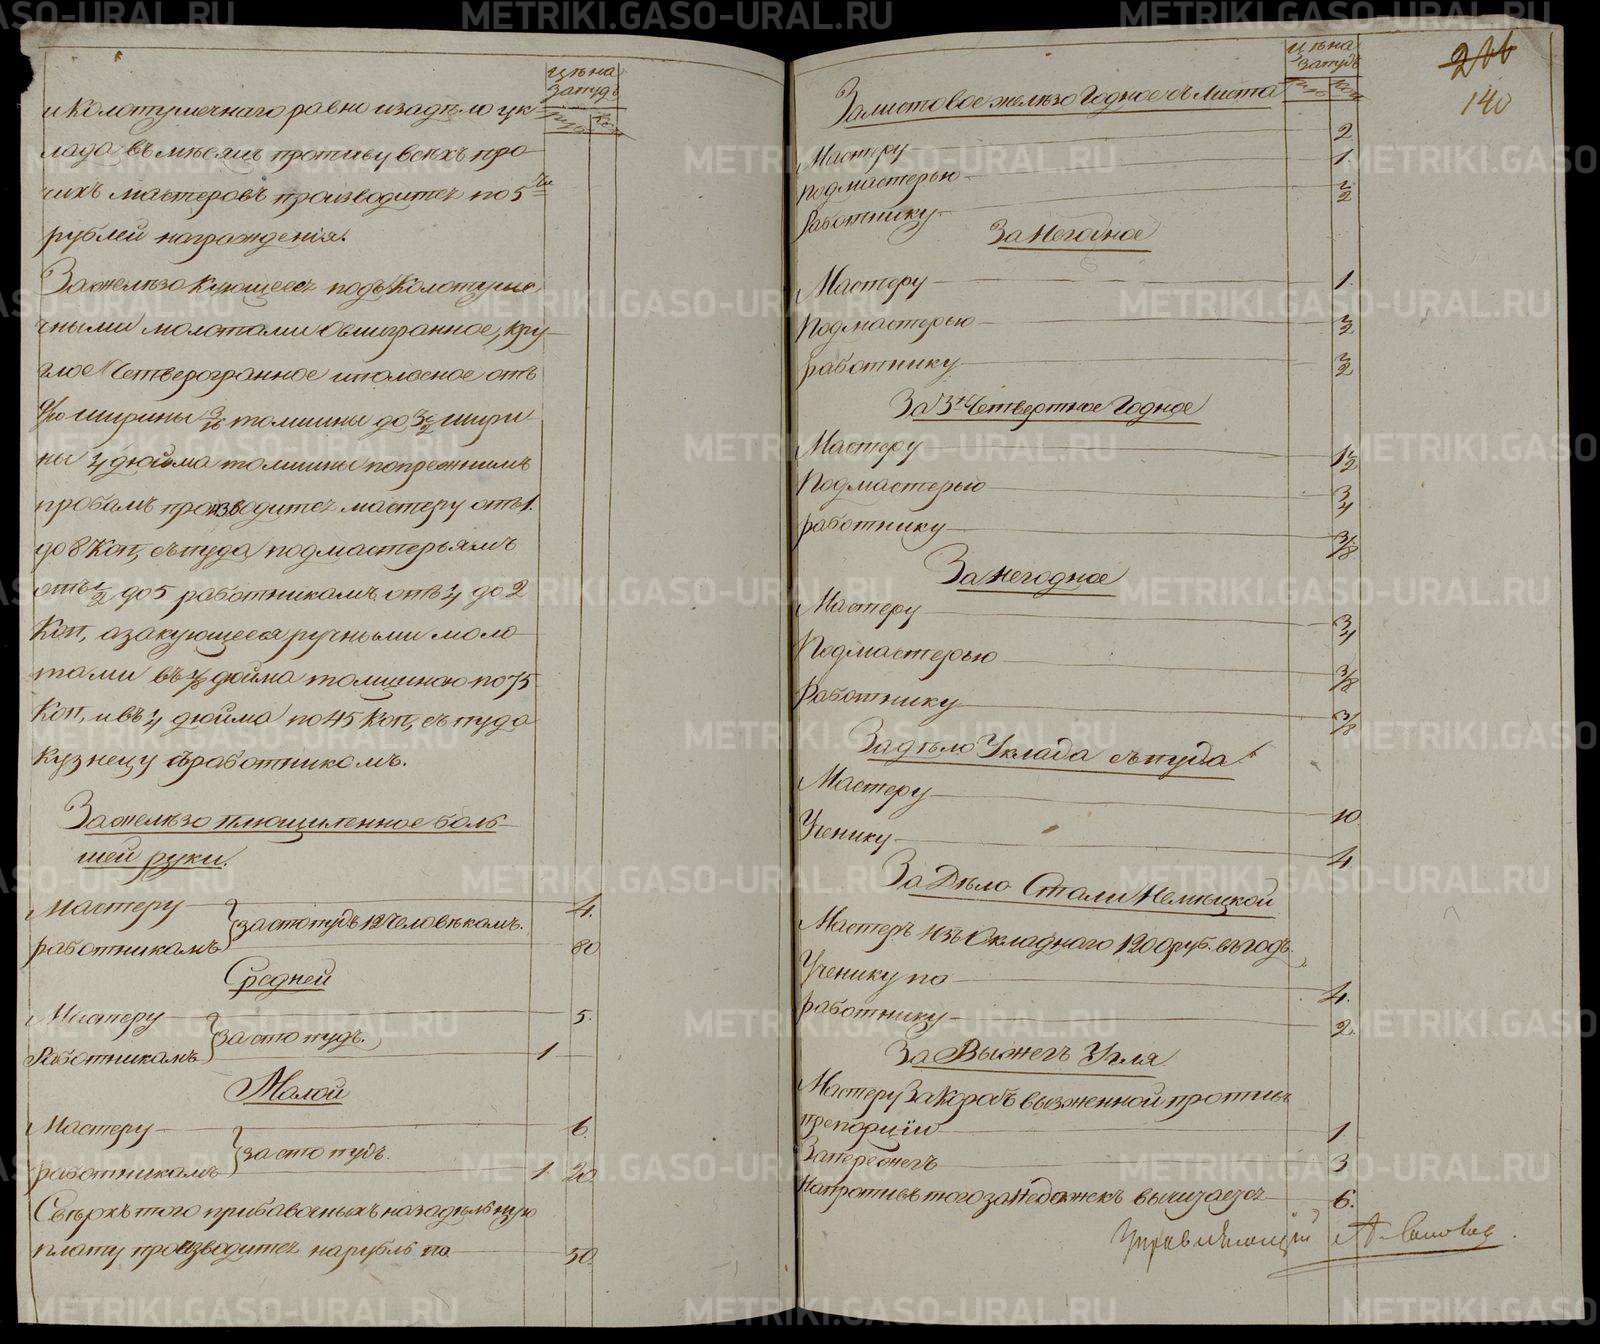 цѣна
за пудъ
руб. коп.
и Колотушечнаго равно и за дѣло ук-
лада въ мѣсяцъ противу всѣхъ про-
чихъ мастеровъ производитсѧ по 5 ти
рублей награжденія.
За желѣзо кующеесѧ подъ Колотушеч-
ными молотами осьмигранное, кру-
глое четверогранное и полосное отъ
ширины 3/16 толщины до 3 1/2 шири-
ны 1/4 дюйма толщины попрежнимъ
пробамъ производитсѧ мастеру отъ 1.
до 8 Коп, съ пуда подмастерьямъ
отъ 1/2 до 5 работникамъ отъ 1/4 до 2
Коп, а за кующееся ручными моло-
тами въ 1/8 дюйма толщиною по 75
Коп, и въ 1/4 дюйма по 45 Коп, съ пуда
Кузнецу съ работникомъ.
За желѣзо плющиленное боль-
шей руки.
Мастеру 4.
за сто пудъ 12 человѣкамъ.
работникамъ 80
Средней
Мастеру 5.
за сто пудъ.
Работникамъ 1
Малой
Мастеру 6.
за сто пудъ.
работникамъ 1. 20
Сверхъ того прибавочныхъ на задѣльную
плату производитсѧ на рубль по 50.
цѣна
за пудъ
руб. коп.
266
140
За листовое желѣзо Годное съ листа
Мастеру 2
подмастерью 1
Работнику 1/2
За Негодное
Мастеру 1.
Подмастерью 1/2
работнику 1/2
За 3хъ Четвертное Годное
Мастеру 1 1/2
Подмастерью 3/4
работнику 3/8
За негодное
Мастеру 3/4
Подмастерью 3/8
Работнику 3/8
За дѣло Уклада съ пуда
Мастеру 10
Ученику 4
За Дѣло Стали Немѣцкой
Мастеръ изъ Окладнаго 1200 руб. въ годъ.
Ученику по 4.
работнику 2.
За Выжегъ Угля
Мастеру За Коробъ выжженной противъ
препорціи 1
За пережегъ 3
Напротивъ того за недожекъ вычитаетсѧ 6.
Управляющій А. Соловьев
METRIKI.GASO-URAL.RU